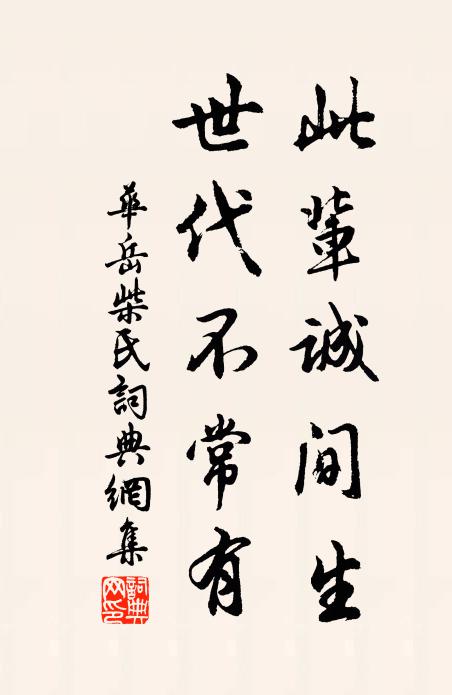 此輩誠間生
世代不常有
華岳柴氏詞典網集
詞典網印